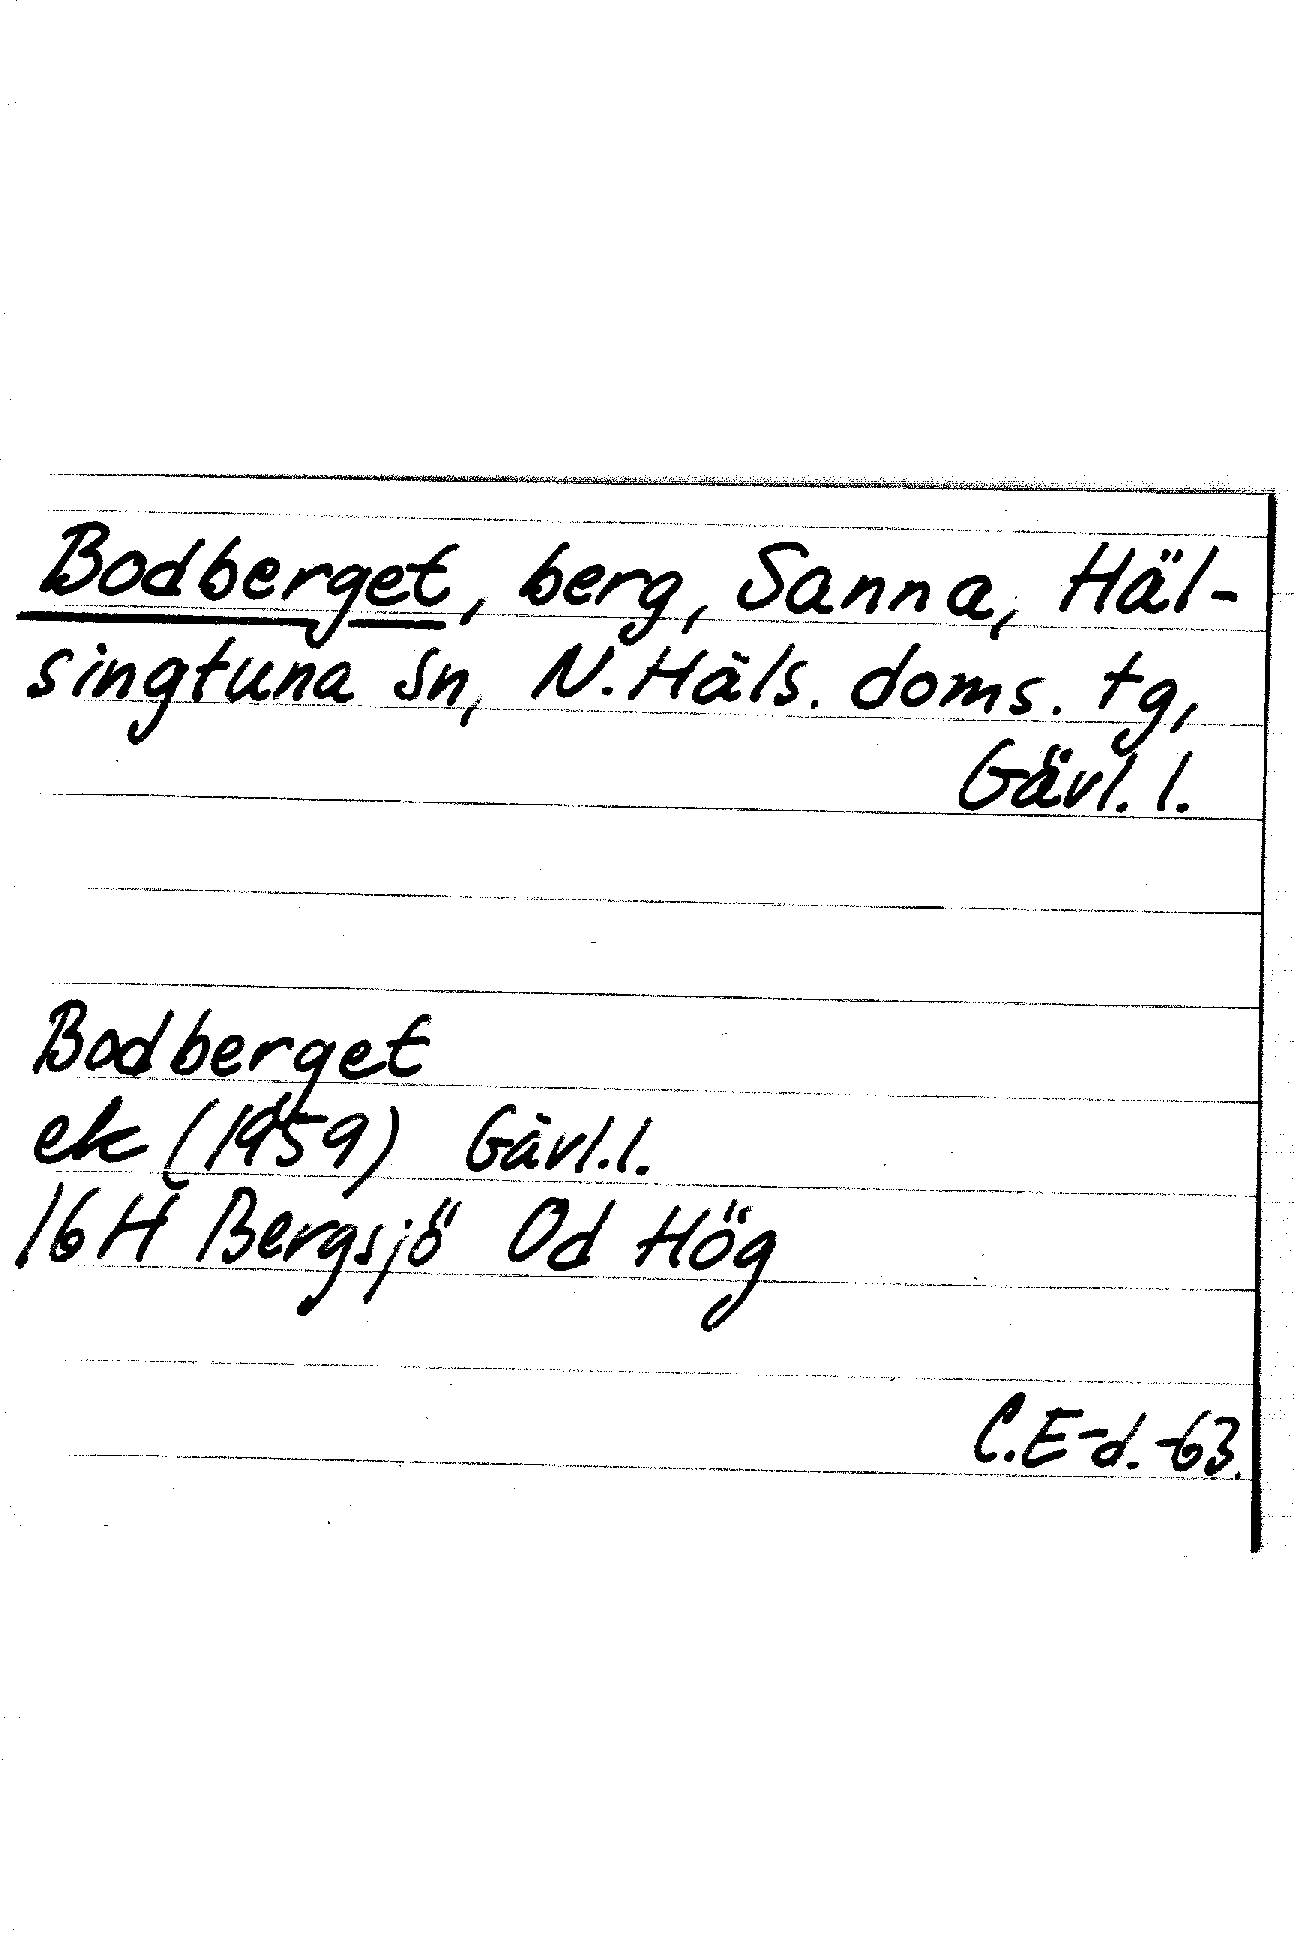 Bodberget, berg, Sanna, Häl-
singtuna sn, N. Häls. doms. tg,
Gävl. l.
Bodberget
ek (1959) Gävl. l.
16H Bergsjö 0d Hög
C.E-d.-63.